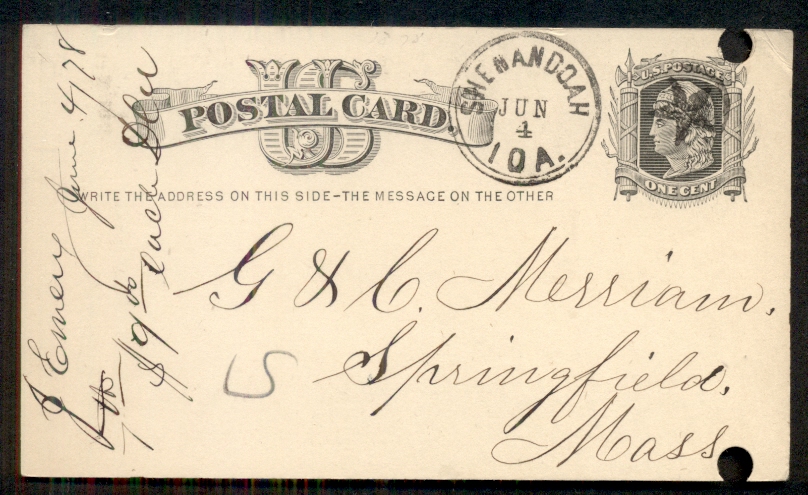 US
POSTAL CARD.
SHENANDOAH
JUN
4
IOA.
U.S. POSTAGE
ONE CENT
WRITE THE ADDRESS ON THIS SIDE–THE MESSAGE ON THE OTHER
G & C. Merriam,
Springfield,
Mass
5
J Emery June 4/78